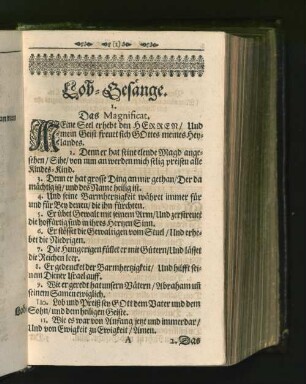 (1)
Lob-Gesänge.
1.
Das Magnificat.
MEine Seel erhebt den HERREN/ Und
mein Geist freuet sich GOttes meines Hey-
landes.
2. Denn er hat seine elende Magd angese-
hen/ Sihe/ von nun an werden mich selig preisen alle
Kindes-Kind.
3. Denn er hat grosse Ding an mir gethan/ Der da
mächtig ist/ und des Name heilig ist.
4. Und seine Barmhertzigkeit währet immer für
und für Bey denen/ die ihn fürchten.
5. Er übet Gewalt mit seinem Arm/ Und zerstreuet
die hoffärtig sind in ihres Hertzen Sinn.
6. Er stösset die Gewaltigen vom Stuel/ Und erhe-
bet die Niedrigen.
7. Die Hungerigen füllet er mit Gütern/ Und lässet
die Reichen leer.
8. Er gedencket der Barmhertzigkeit/ Und hülfft sei-
nem Diener Israel auff.
9. Wie er geredt hat unsern Vätern/ Abraham und
seinem Samen ewiglich.
10. Lob und Preiß sey GOTT dem Vater und dem
Sohn/ und dem heiligen Geiste.
11. Wie es war von Anfang jetzt und immerdar/
Und von Ewigkeit zu Ewigkeit/ Amen.
A 2. Das